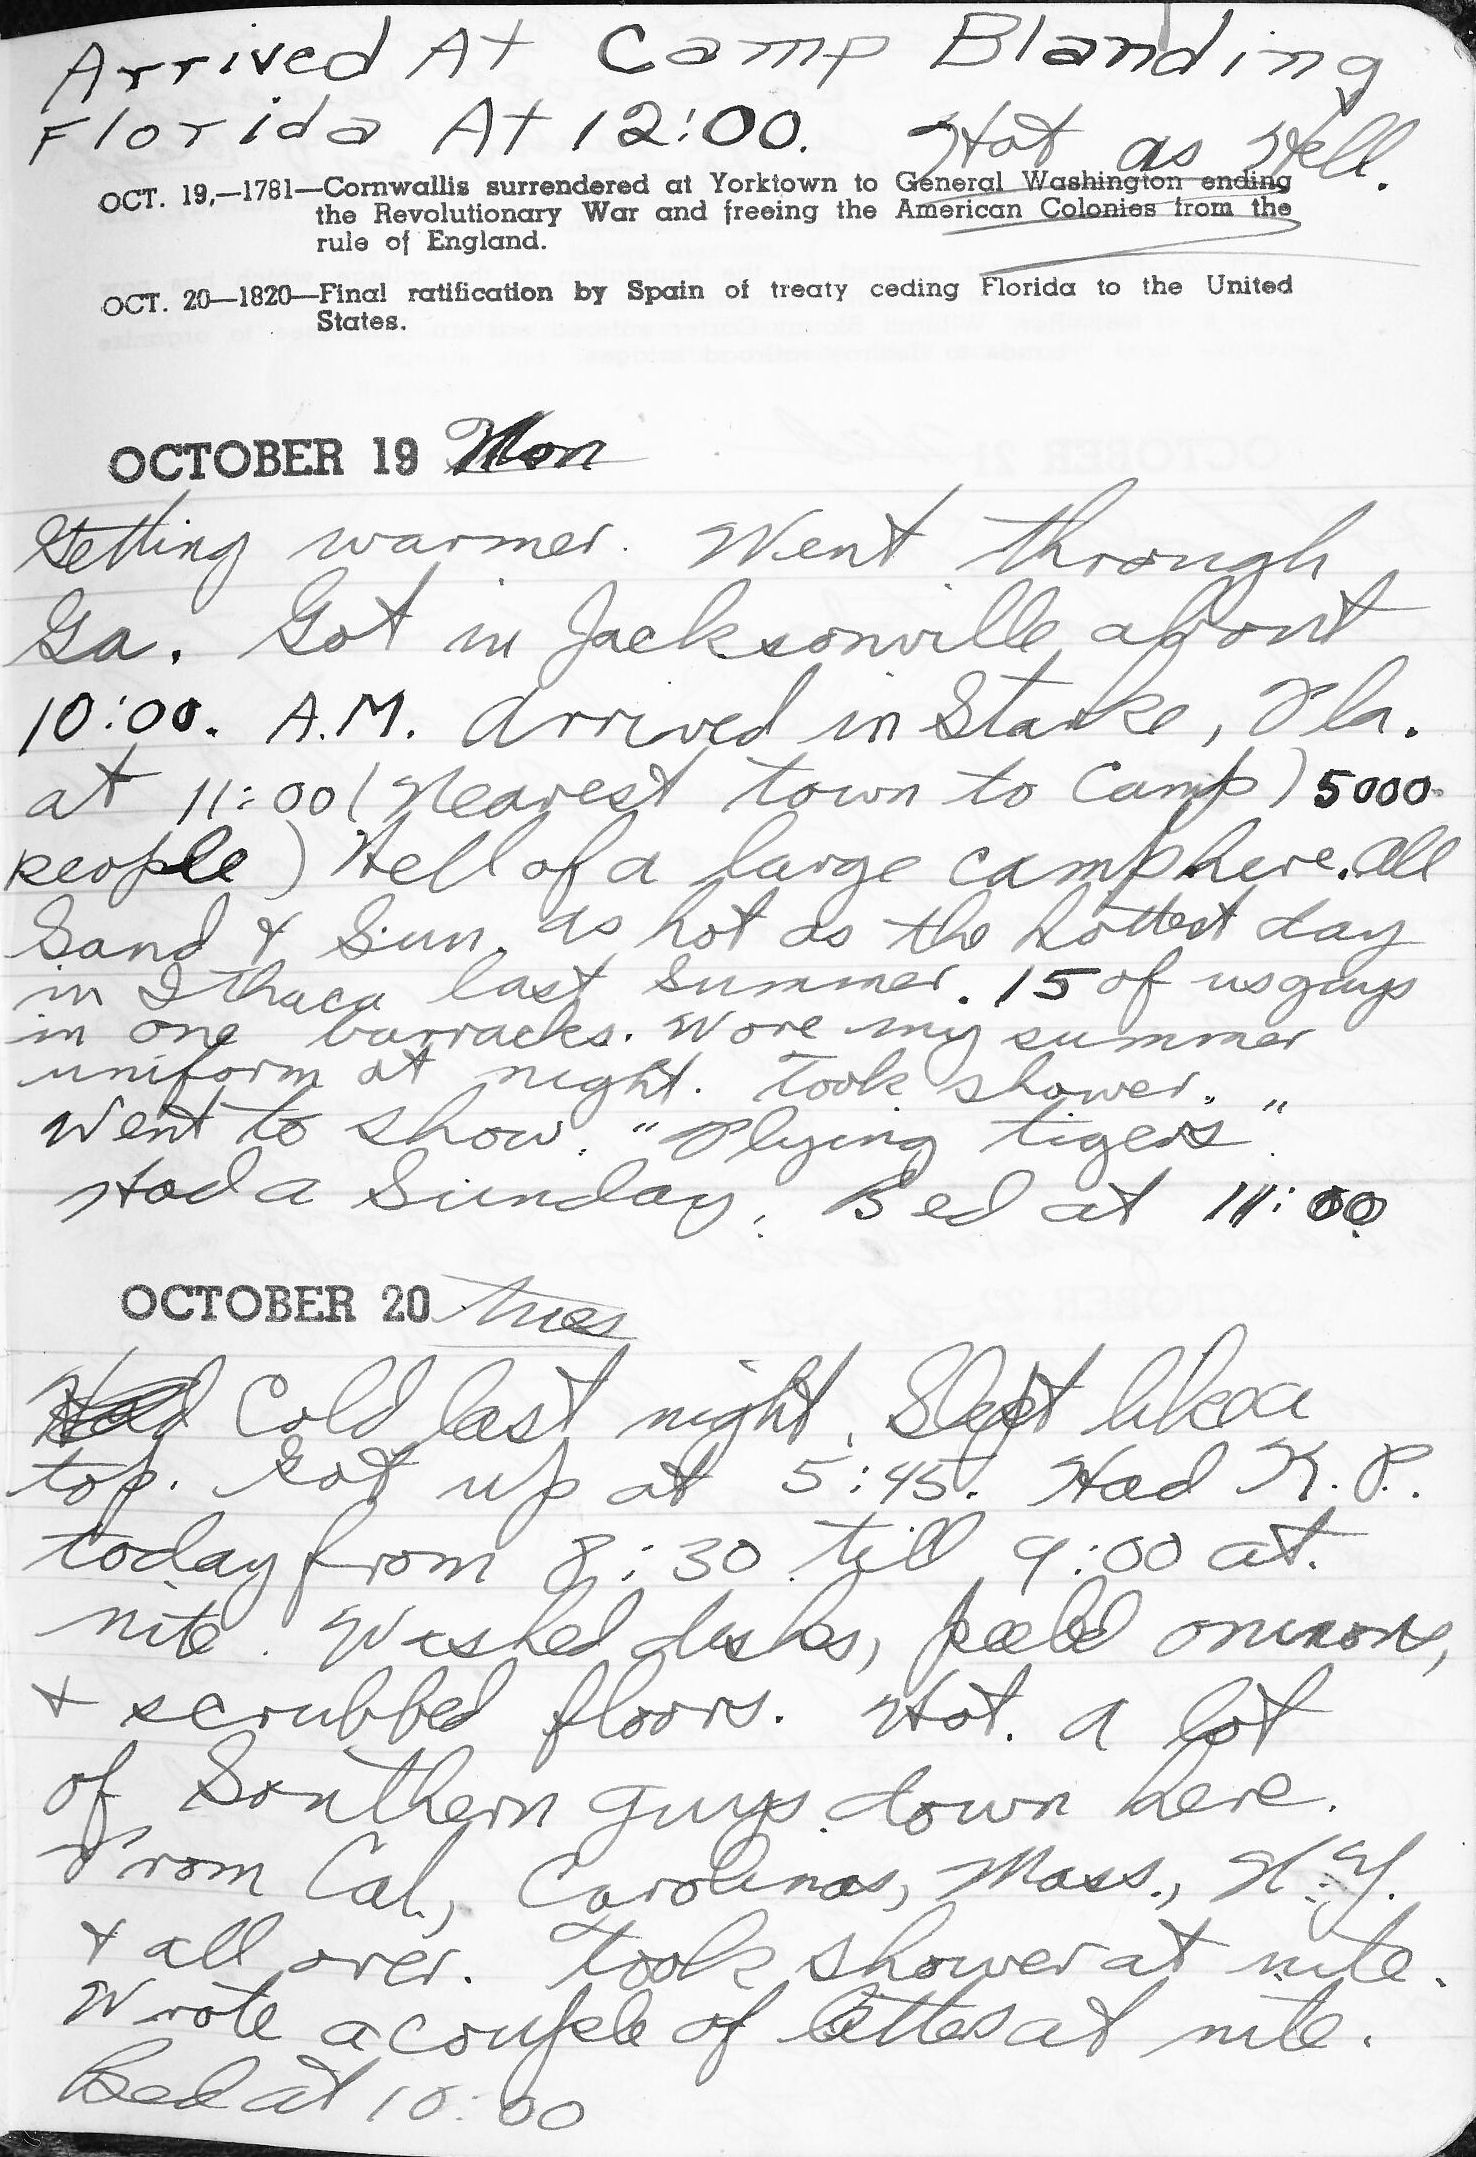 Arrived At Camp Blanding
Florida At 12:00. Hot as Hell.
OCT. 19,—1781—Cornwallis surrendered at Yorktown to General Washington ending
the Revolutionary War and freeing the American Colonies from the
rule of England.
OCT. 20—1820—Final ratification by Spain of treaty ceding Florida to the United
States.
OCTOBER 19 Mon
Getting warmer. Went through
Ga. Got in Jacksonville about
10:00. A.M. Arrived in Starke, Fla.
at 11:00 (Nearest town to Camp) 5000
people) Hell of a large camp here. All
Sand & Sun. As hot as the hottest day
in Ithaca last summer. 15 of us guys
in one barracks. Wore my summer
uniform at night. Took shower.
Went to show. "Flying tigers".
Had a Sunday. Bed at 11:00
OCTOBER 20 Tues
Cold last night. Slept like a
top. Got up at 5:45. Had K.P.
today from 8:30 till 9:00 at.
nite. Washed dishes, peeled onions,
& scrubbed floors. Hot. A lot
of Southern guys down here.
From Cal., Carolinas, Mass., N.Y.
& all over. Took shower at nite.
Wrote a couple of lettes at nite.
Bed at 10:00